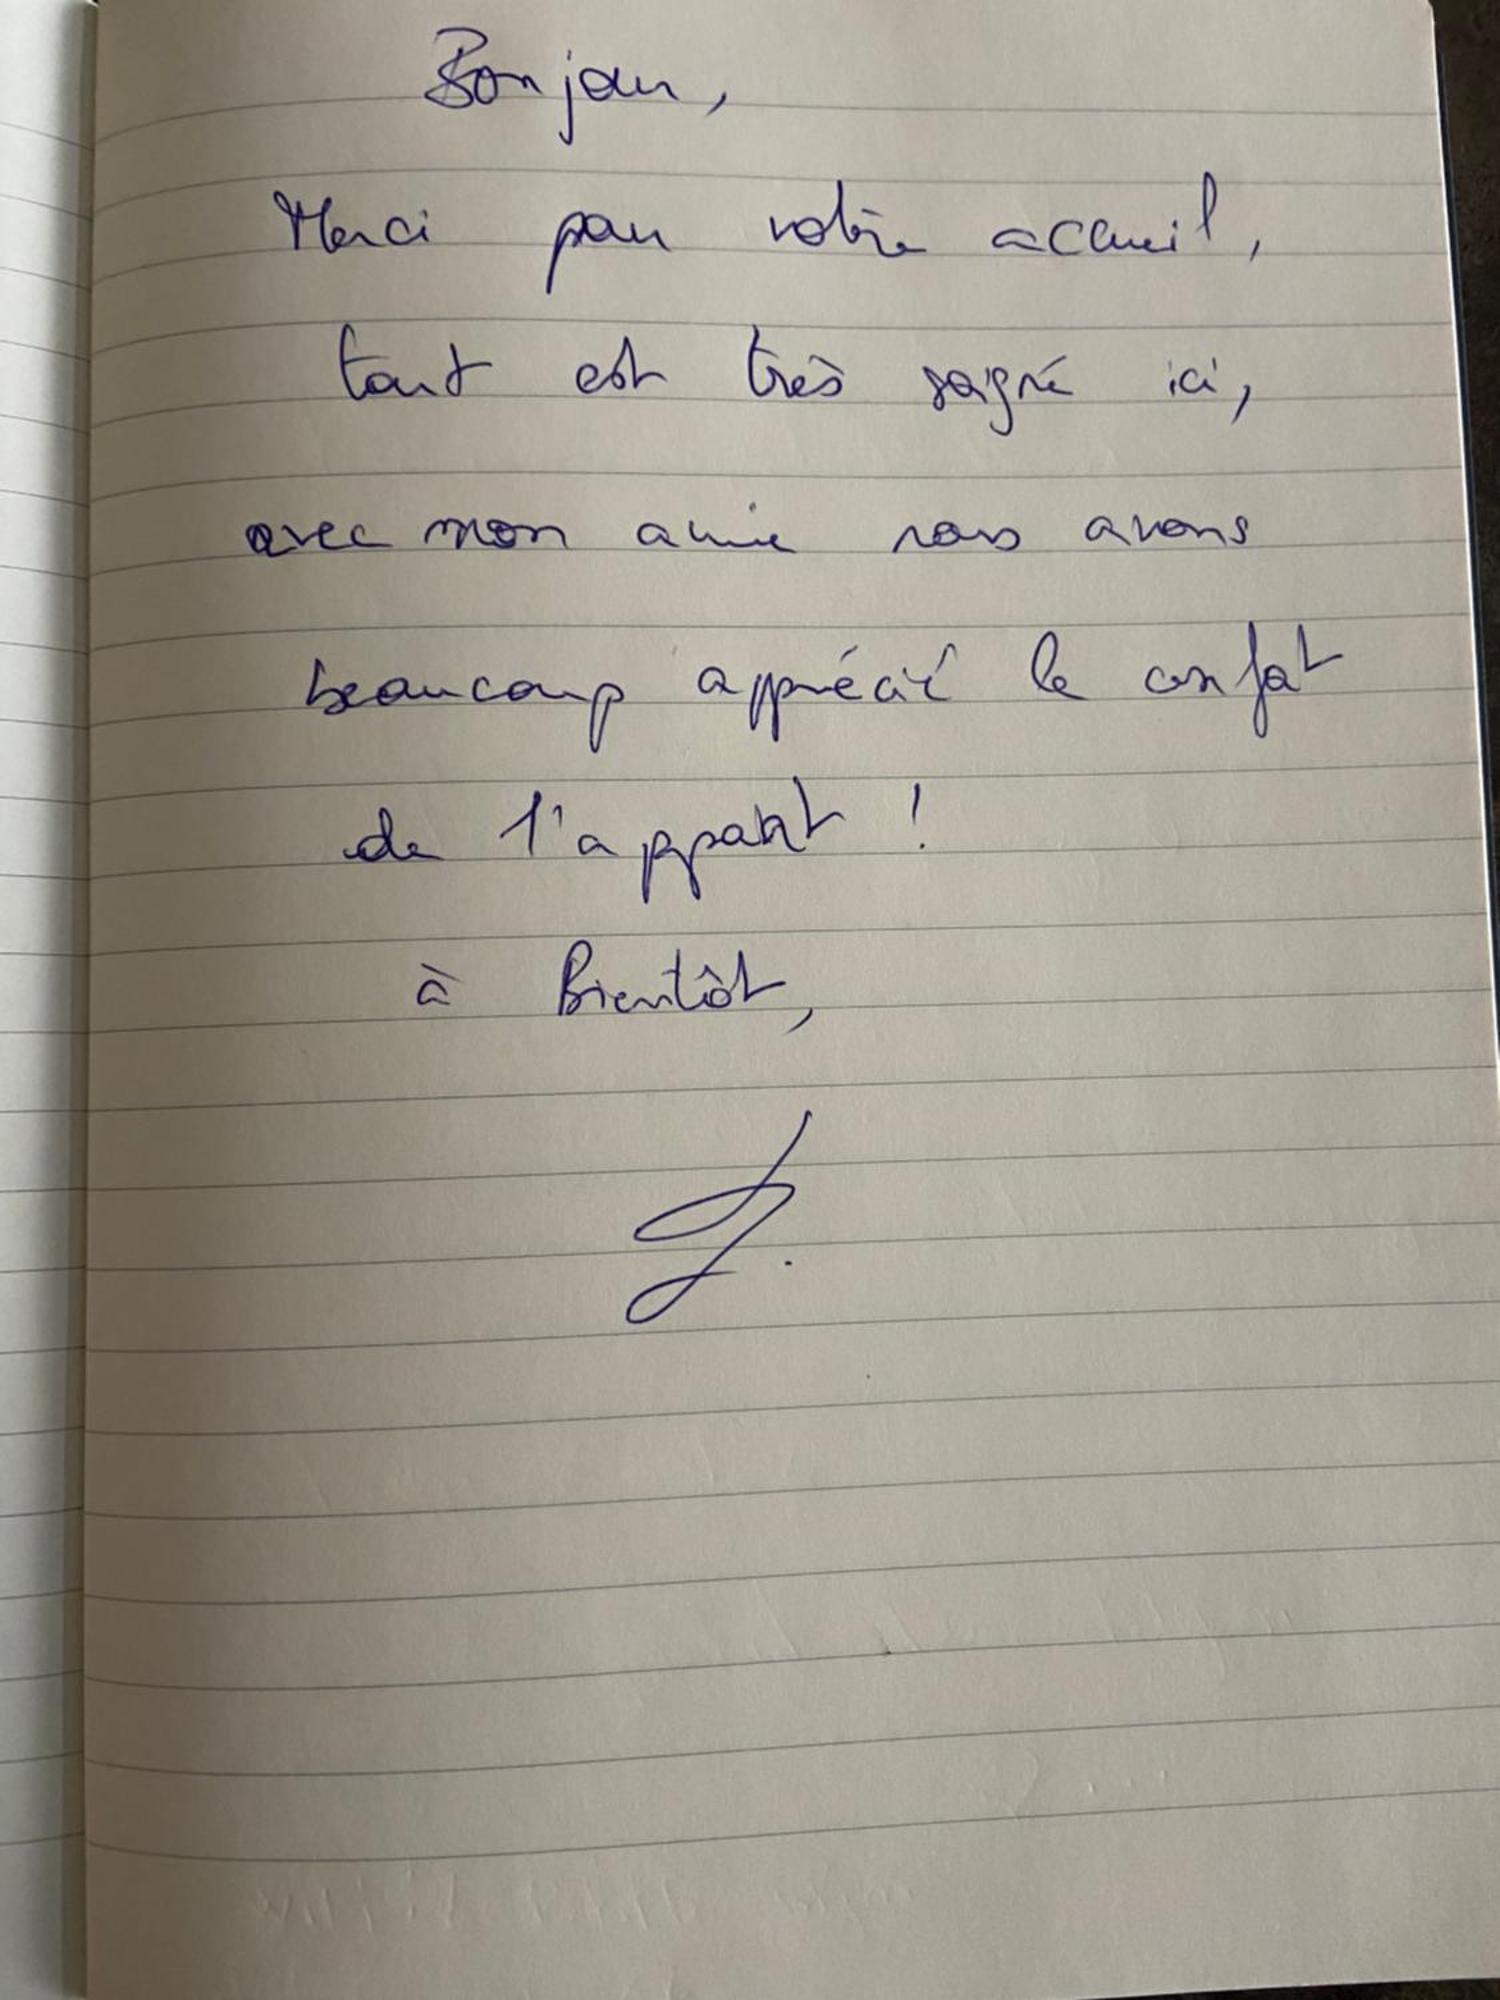 Bonjour,
Merci pour votre accueil,
tout est très soigné ici,
avec mon amie nous avons
beaucoup apprécié le confort
de l'appart !
à Bientôt,